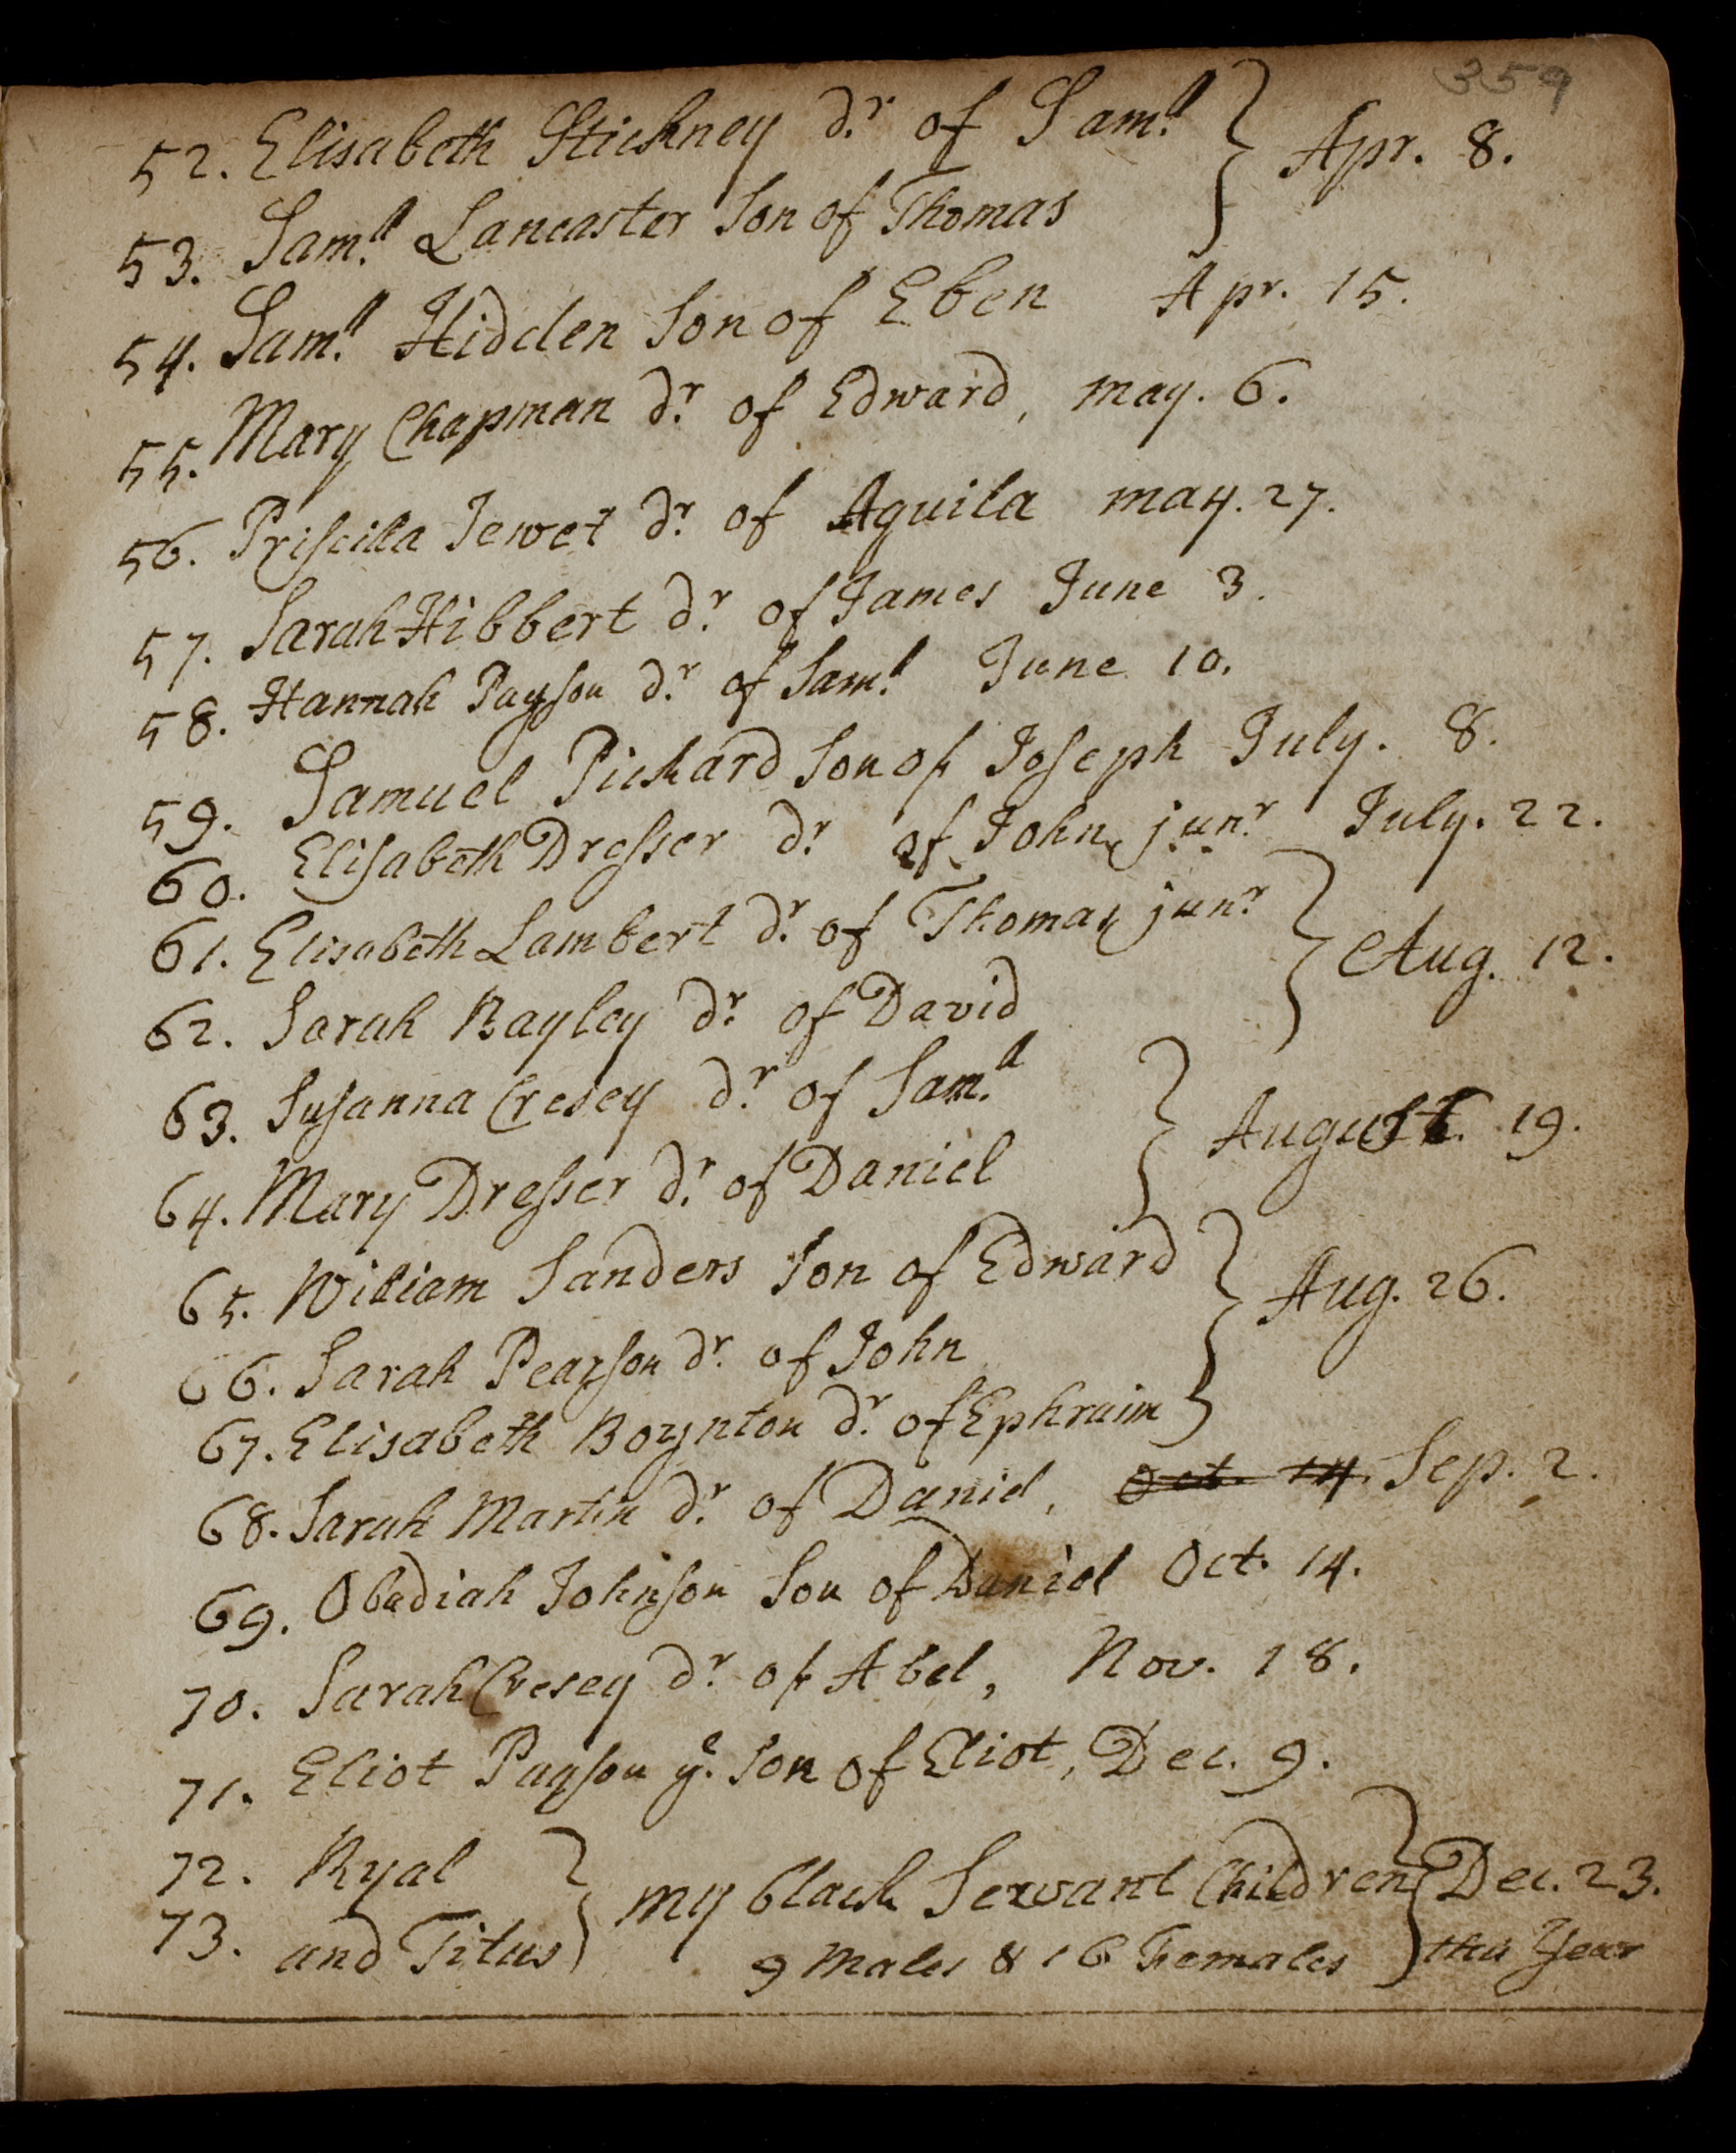 359
52. Elisabeth Stickney dr. of Samll } Apr. 8.
53. Samll Lancaster Son of Thomas
54. Samll Hidden Son of Eben Apr. 15.
55. Mary Chapman dr. of Edward, may. 6.
56. Priscilla Jewet dr. of Aquila may. 27.
57. Sarah Hibbert dr. of James June 3.
58. Hannah Payson dr. of Samll June 10.
59. Samuel Pickard Son of Joseph July. 8.
60. Elisabeth Dresser dr. of John, junr July. 22.
61. Elisabeth Lambert dr. of Thomas junr } Aug. 12.
62. Sarah Bayley dr. of David
63. Susanna Cresey dr. of Samll } August. 19.
64. Mary Dresser dr. of Daniel
65. William Sanders Son of Edward } Aug. 26.
66. Sarah Pearson dr. of John
67. Elisabeth Boynton dr. of Ephraim
68. Sarah Martin dr. of Daniel, Oct. 14. Sep. 2.
69. Obadiah Johnson Son of Daniel Oct. 14.
70. Sarah Cresey dr. of Abel, Nov. 18.
71. Eliot Payson ye. Son of Eliot, Dec. 9.
72. Ryal } my black Servant Children } Dec. 23.
73. and Titus 9 Males & 16 Females this Year